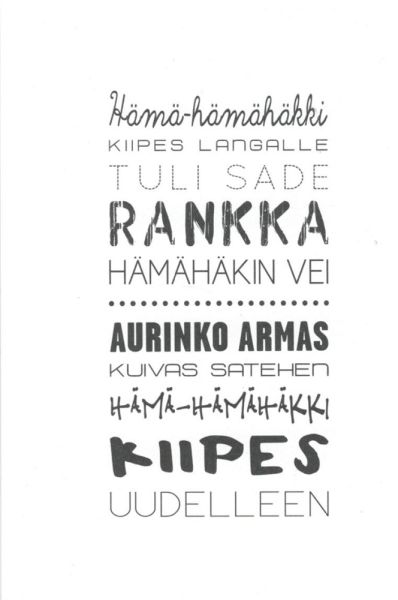 Hämä-hämähäkki
KIIPES LANGALLE
TULI SADE
RANKKA
HÄMÄHÄKIN VEI
AURINKO ARMAS
KUIVAS SATEHEN
HÄMÄ-HÄMÄHÄKKI
KIIPES
UUDELLEEN